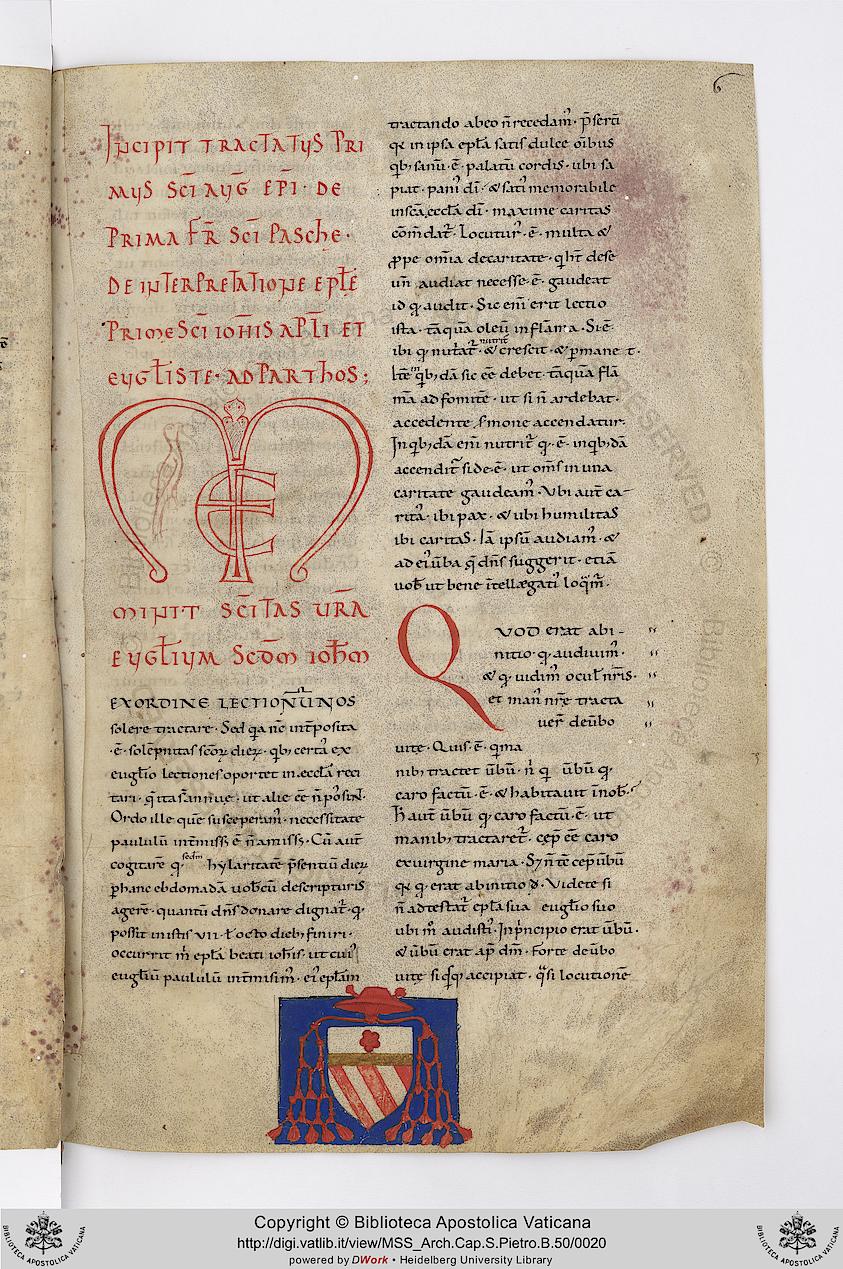 6
INCIPIT TRACTATUS PRI
MUS SCI AUG EPI · DE
PRIMA FR SCI PASCHE ·
DE INTERPRETATIONE EPLE
PRIME SCI IOHIS APLI ET
EUGLISTE · AD PARTHOS;
ME
MINIT SCITAS URA
EUGLIUM SCDM IOHM
EX ORDINE LECTIONUM NOS
solere tractare · Sed qa nc intposita
· ē · solepnitas scoꝝ dieꝝ · qb; certa ex
euglio lectiones oportet in eccla reci
tari · q ita s annue · ut alie ee n posin ·
Ordo ille que susceperam · necessitate
paululu intmiss e n amiss · Cu aut
cogitare q sedm hylaritate psentiu dieꝝ
p hanc ebdomada uobcu descripturis
agere · quantu dns donare dignat · q
possit in istis vii · l octo dieb; finiri ·
occurrit m epla beati iohis · ut cui
eugliu paululu intmisim · ei eplam
tractando ab eo n recedam · pserti
qa in ipsa epla satis dulce oibus
qb; sanu · ē · palatu cordis · ubi sa
piat · pani di · & sati memorabile
in sca eccla di · maxime caritas
comdat · Locutur · ē · multa &
ppe omia de caritate · q ht dese
un audiat necesse · ē · gaudeat
id q audit · Sic eni erit lectio
ista · taqua oleu in flama · Si · ē ·
ibi q nutat nutrit & crescit · & pmane t ·
lte qb;da sic ee debet · taqua fla
ma ad fomite · ut si n ardebat ·
accedente smone accendatur ·
In qb;da eni nutrit q · ē · in qb;da
accendit si de · ē · ut oms in una
caritate gaudeam · Ubi aut ca-
rita · ibi pax · & ubi humilitas
ibi caritas · Ia ipsu audiam · &
ad ei uba q dns suggerit · etia
uob ut bene itellegati loqm ·
QUOD erat abi-
nitio · q audiuim ·
& q uidim ocul nris ·
et man nre tracta
uer de ubo
uite · Quis · ē · q ma
nib; tractet ubu · n q ubu q
caro factu · ē · & habitauit in ob ·
H aut ubu q caro factu · ē · ut
manib; tractaret · cep ee caro
ex uirgine maria · S; n te cep ubu
qa q erat ab initio d · Videte si
n adtestat epla sua euglio suo
ubi m audisti · In pncipio erat ubu ·
& ubu erat ap dm · Forte de ubo
uite si qsq accipiat · qsi locutione
Copyright © Biblioteca Apostolica Vaticana
http://digi.vatlib.it/view/MSS_Arch.Cap.S.Pietro.B.50/0020
powered by DWork • Heidelberg University Library
BIBLIOTECA APOSTOLICA VATICANA
BIBLIOTECA APOSTOLICA VATICANA